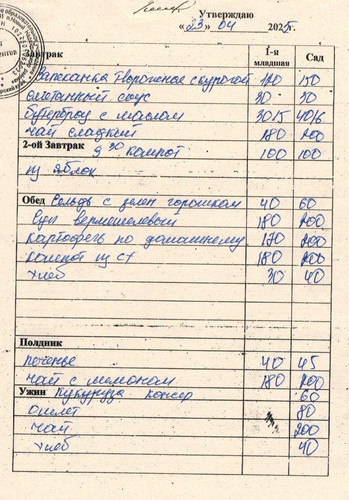 Утверждаю
«23» 04 2025г.
Завтрак 1-я младшая Сад
Запеканка творожная с курагой 120 150
сметанный соус 30 30
бутерброд с маслом 30/5 40/6
чай сладкий 180 200
2-ой Завтрак 9 30 компот 100 100
из яблок
Обед Сельдь с зелен горошком 40 60
Суп вермешелевый 180 200
картофель по домашнему 170 200
компот из с/х 180 200
хлеб 30 40
Полдник
печенье 40 45
чай с лимоном 180 200
Ужин Кукуруза консер 60
омлет 80
чай 200
хлеб 40